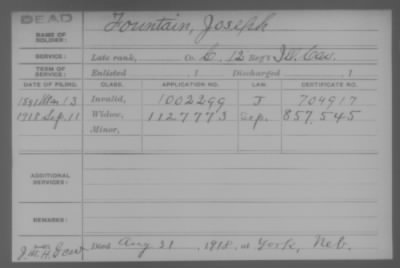 DEAD
NAME OF SOLDIER: Fountain, Joseph
SERVICE: Late rank, Co. C, 12 Reg't Ill. Cav.
TERM OF SERVICE: Enlisted , 1 Discharged , 1
DATE OF FILING. CLASS. APPLICATION NO. LAW. CERTIFICATE NO.
1891 13 Invalid, 1002299 J 704917
1918 Sep. 11 Widow, 1127773 857,545
Minor,
ADDITIONAL SERVICES:
REMARKS:
J.M.H. Died Aug 21, 1918, at York, Neb.